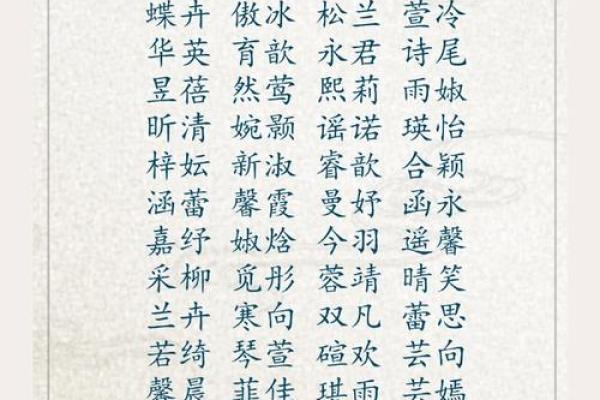 蝶卉 傲冰 松兰 萱冷
华英 育歆 永君 诗尾
昱蓓 然莺 熙莉 雨婌
昕清 婉颢 谣诺 瑛怡
梓妘 新淑 睿歆 合颖
涵蕾 馨霞 曼妤 函永
嘉纾 婌焓 今羽 遥馨
采柳 觅彤 蓉靖 晴笑
兰卉 寒向 双凡 蕾思
若绮 琴萱 碹欢 芸向
馨晨 菲佳 琪雨 芸嫣